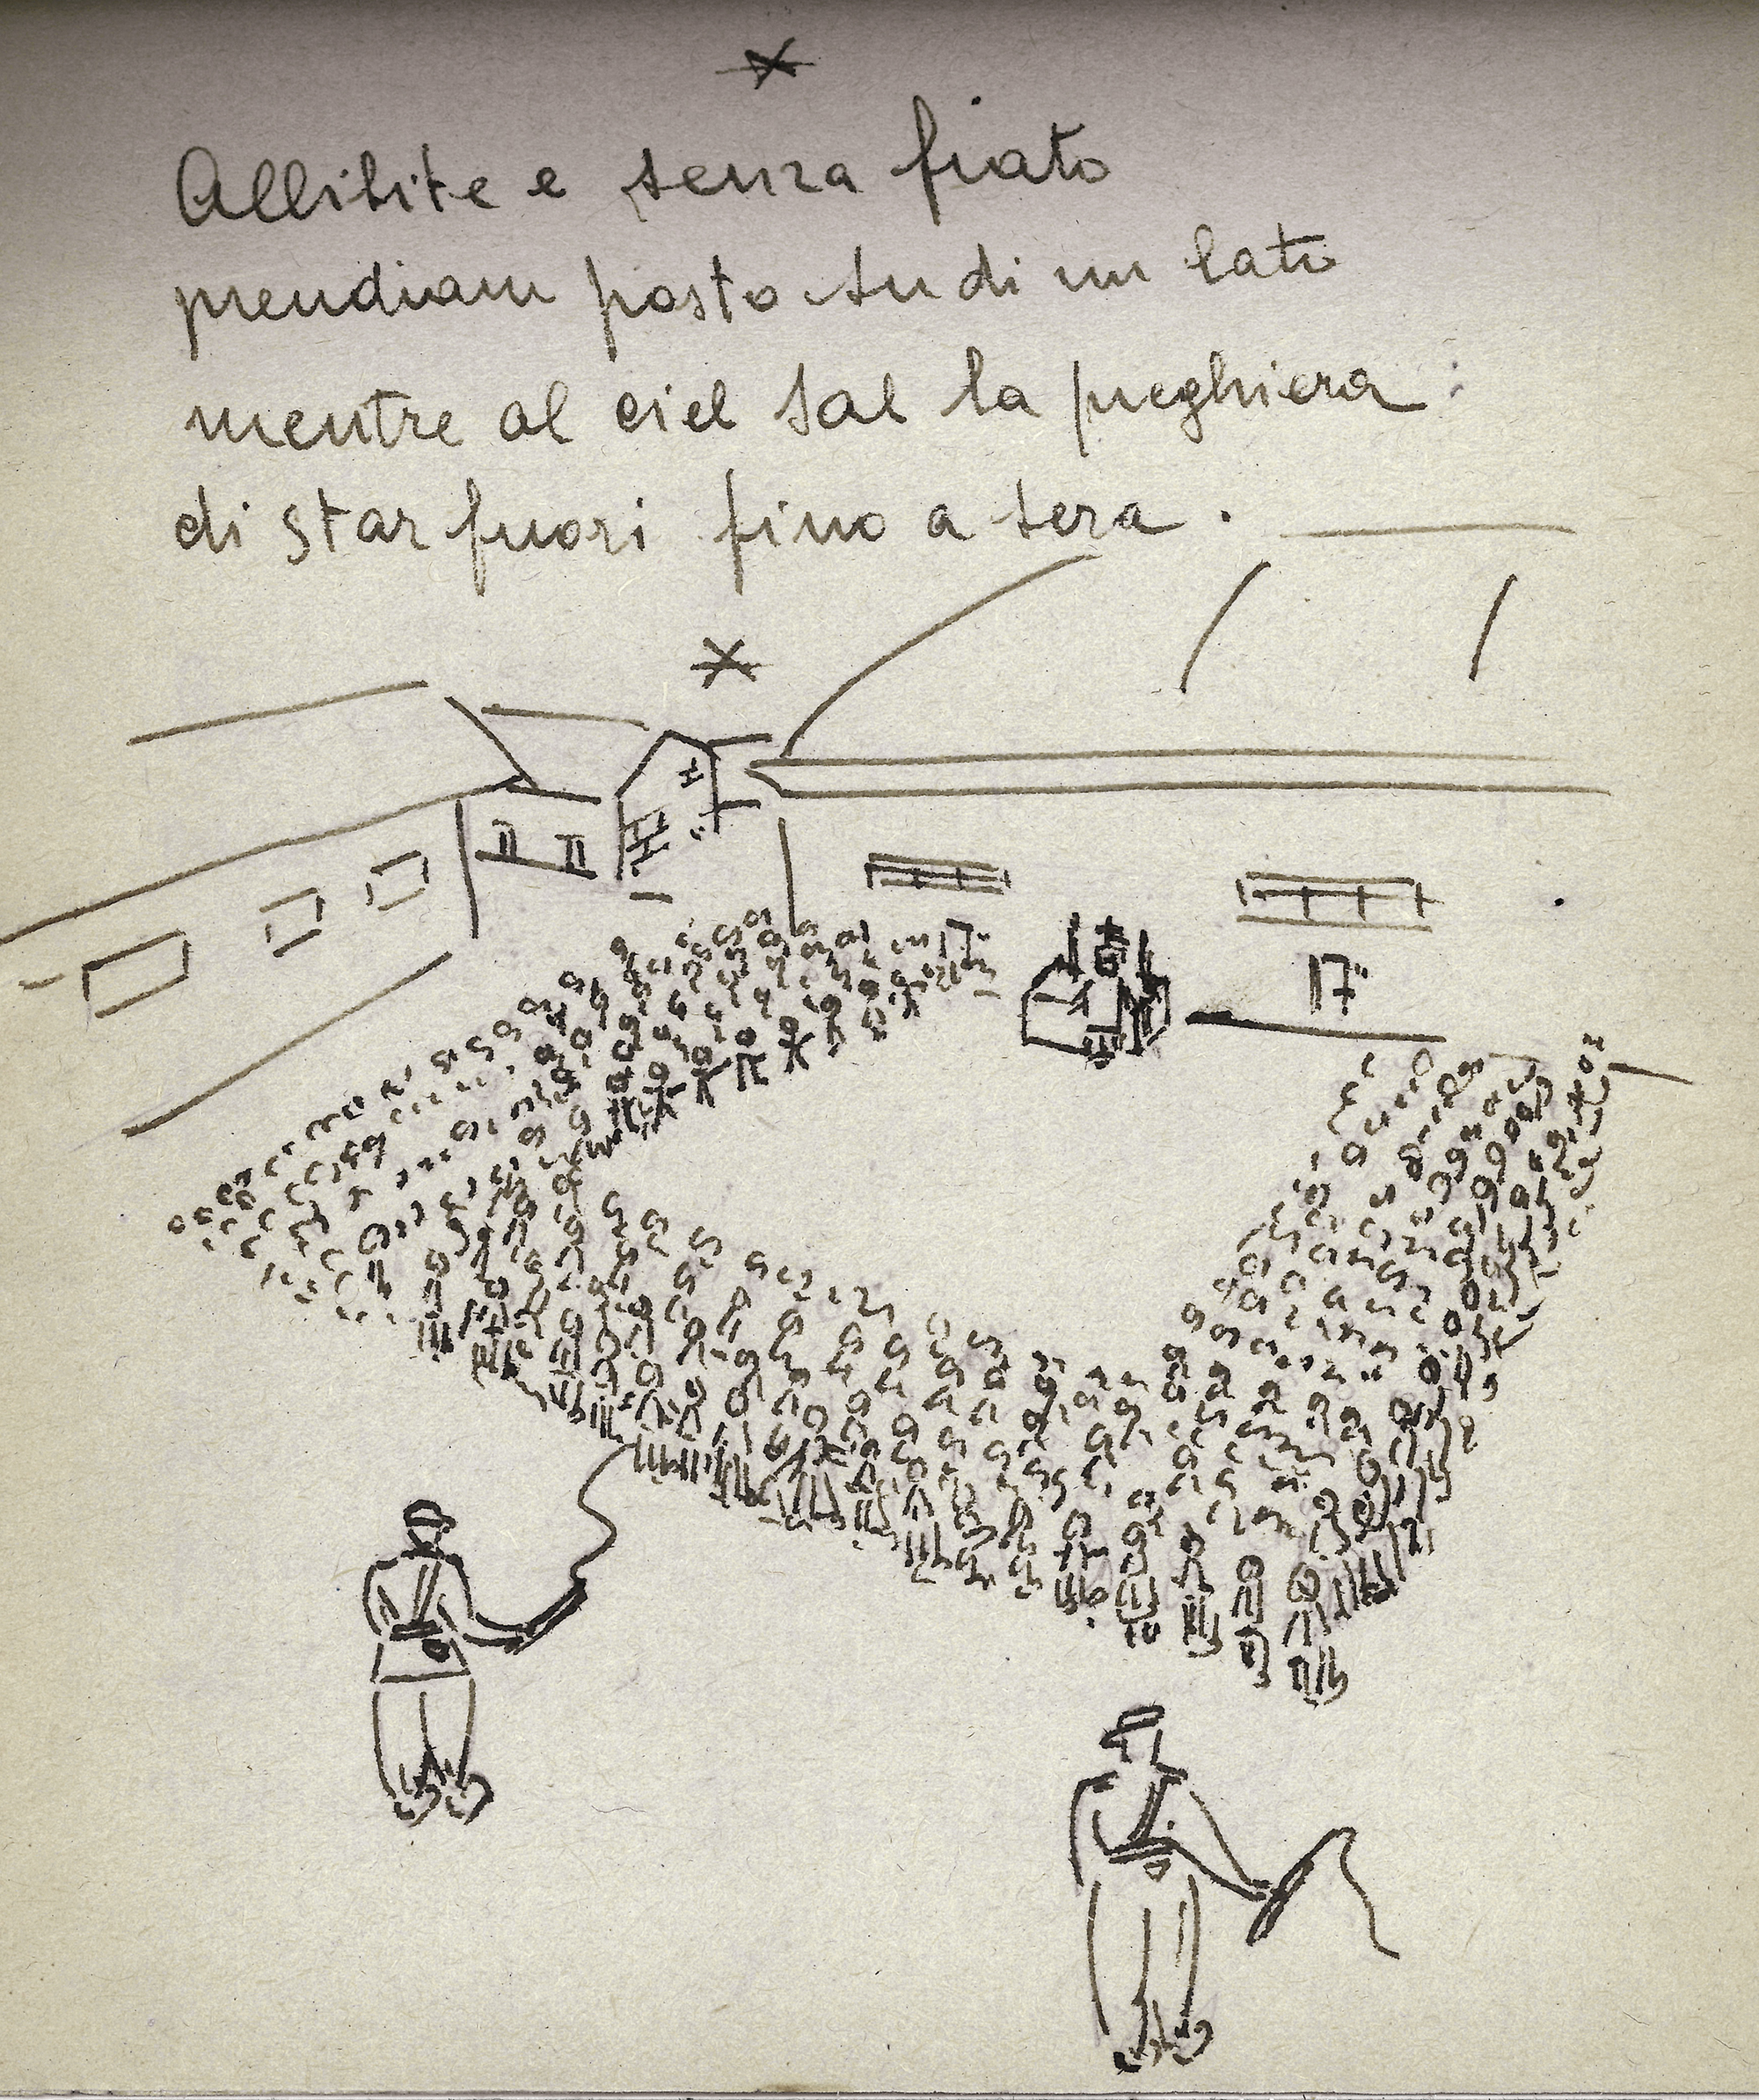 Allibite e senza fiato
prendiam posto su di un lato
mentre al ciel sal la preghiera
di star fuori fino a sera.
17